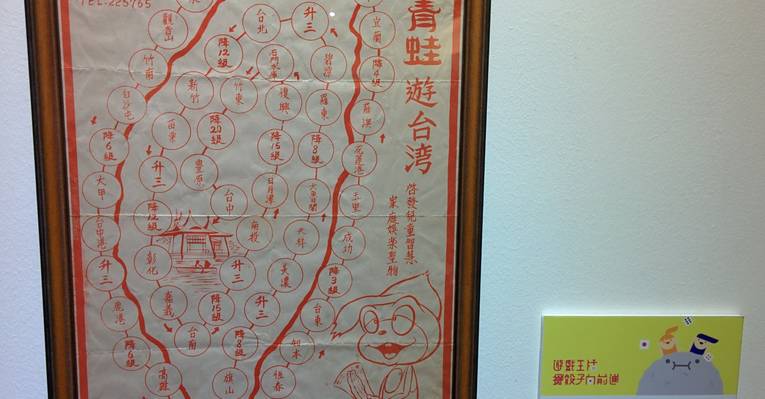 TEL:225765
青蛙遊台湾
啓發兒童智慧
家庭娛樂聖物
觀音
竹南
白沙屯
降6級
大甲
台中港
升三
鹿港
降6級
高雄
台北
降12級
新竹
苗栗
升三
降12級
彰化
嘉義
台南
石門水庫
竹東
降20級
豐原
台中
南投
升三
降15級
升三
碧潭
復興
羅東
降15級
降8級
日月潭
天祥
美濃
升三
降8級
旗山
宜蘭
降4級
蘇澳
花蓮港
玉里
成功
降3級
台東
知本
恆春
遊戲王法
擲骰子向前進